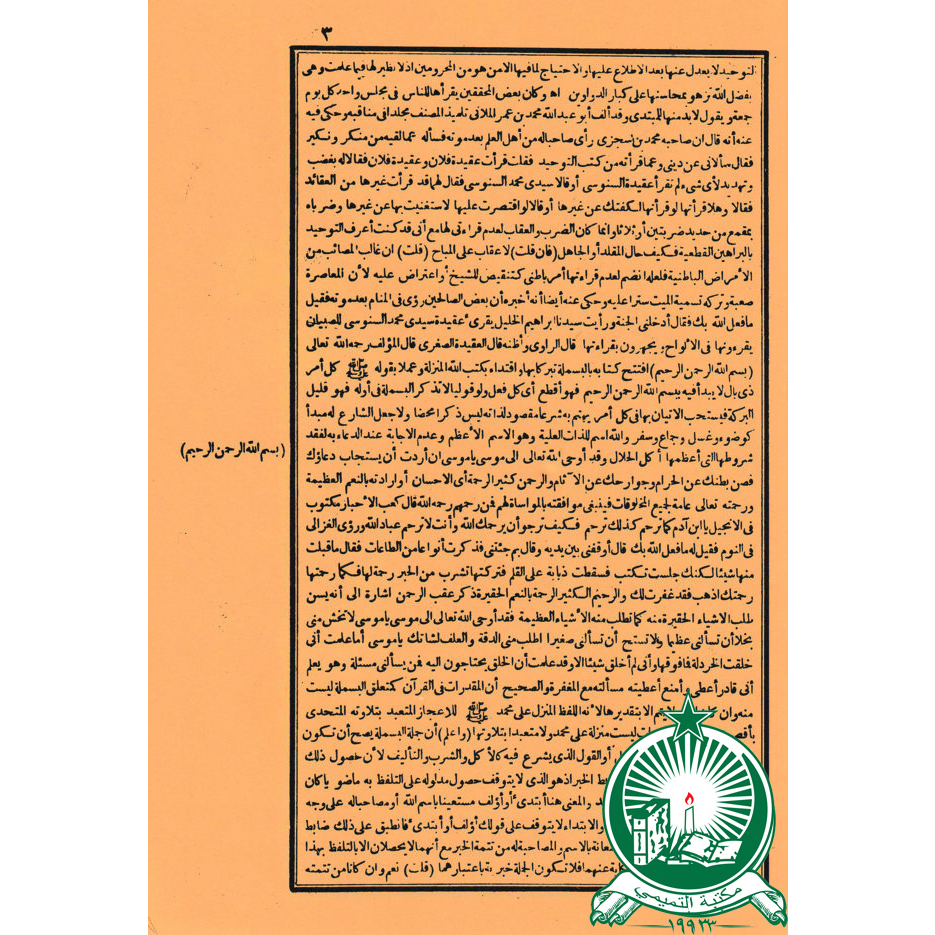 ٣
التوحيد لا يعدل عنها بعد الاطلاع عليها والاحتياج لما فيها الا من هو من المحرومين اذ لا نظير لها فيما علمت وهى
بفضل الله تزهو بمحاسنها على كبار الدواوين اه وكان بعض المحققين يقرأها للناس فى مجلس واحد كل يوم
جمعة ويقول لا بد منها للمبتدى وقد ألف أبو عبد الله محمد بن عمر الملالى تلميذ المصنف مجلدا فى مناقبه وحكى فيه
عنه أنه قال ان صاحبه محمد بن رأى صاحبا له من أهل العلم بعد موته فسأله عما لقيه من منكر ونكير
فقال سألانى عن دينى وعما قرأته من كتب التوحيد فقلت قرأت عقيدة فلان وعقيدة فلان فقالا له بغضب
وتهديد لأى شىء لم تقرأ عقيدة السنوسى أو قالا سيدى محمد السنوسى فقال لهما قد قرأت غيرها من العقائد
فقالا وهلا قرأتها لو قرأتها لكفتك عن غيرها أو قالا لو اقتصرت عليها لاستغنيت بها عن غيرها وضرباه
بمقمع من حديد ضربتين أو ثلاثا وانما كان الضرب والعقاب لعدم قراءتى لها مع أنى قد كنت أعرف التوحيد
بالبراهين القطعية فكيف حال المقلد أو الجاهل (فان قلت) لا عقاب على المباح (قلت) ان غالب المصائب من
الأمراض الباطنية فلعله انضم لعدم قراءتها أمر باطنى كتنقيص للشيخ أو اعتراض عليه لأن المعاصرة
صعبة وتركه تسمية الميت سترا عليه وحكى عنه أيضا أنه أخبره أن بعض الصالحين رؤى فى المنام بعد موته فقيل
ما فعل الله بك فقال أدخلنى الجنة ورأيت سيدنا ابراهيم الخليل يقرى عقيدة سيدى محمد السنوسى للصبيان
يقرءونها فى الألواح ويجهرون بقراءتها قال الراوى وأظنه قال العقيدة الصغرى قال المؤلف رحمه الله تعالى
(بسم الله الرحمن الرحيم) افتتح كتابه بالبسملة تبركا بها واقتداء بكتب الله المنزلة وعملا بقوله ﷺ كل أمر
ذى بال لا يبدأ فيه ببسم الله الرحمن الرحيم فهو أقطع أى كل فعل ولو قوليا لا تذكر البسملة فى أوله فهو قليل
البركة فيستحب الاتيان بها فى كل أمر يهتم به شرعا مقصود لذاته ليس ذكرا محضا ولا جعل الشارع له مبدأ
كوضوء وغسل وجماع وسفر والله اسم للذات العلية وهو الاسم الأعظم وعدم الاجابة عند الدعاء به لفقد
شروطها التى أعظمها أكل الحلال وقد أوحى الله تعالى الى موسى يا موسى ان أردت أن يستجاب دعاؤك
فصن بطنك عن الحرام وجوارحك عن الآثام والرحمن كثير الرحمة أى الاحسان أو ارادته بالنعم العظيمة
ورحمته تعالى عامة لجميع المخلوقات فينبغى موافقته بالمواساة لهم فمن رحمهم رحمه الله قال كعب الأحبار مكتوب
فى الانجيل يا ابن آدم كما ترحم كذلك ترحم فكيف ترجو أن يرحمك الله وأنت لا ترحم عباد الله ورؤى الغزالى
فى النوم فقيل له ما فعل الله بك قال أوقفنى بين يديه وقال بم جئتنى فذكرت أنواعا من الطاعات فقال ما قبلت
منها شيئا لكنك جلست تكتب فسقطت ذبابة على القلم فتركتها تشرب من الحبر رحمة لها فكما رحمتها
رحمتك اذهب فقد غفرت لك والرحيم الكثير الرحمة بالنعم الحقيرة ذكر عقب الرحمن اشارة الى أنه يسن
طلب الأشياء الحقيرة منه كما تطلب منه الأشياء العظيمة فقد أوحى الله تعالى الى موسى يا موسى لا تخش منى
بخلا أن تسألنى عظيما ولا تستح أن تسألنى صغيرا اطلب منى الدقة والعلف لشاتك يا موسى أما علمت أنى
خلقت الخردلة فما فوقها وأنى لم أخلق شيئا الا وقد علمت أن الخلق يحتاجون اليه فمن يسألنى مسئلة وهو يعلم
أنى قادر أعطى وأمنع أعطيته مسألته مع المغفرة والصحيح أن المقدرات فى القرآن كمتعلق البسملة ليست
منه وان الا بتقديرها لأنه اللفظ المنزل على محمد ﷺ للاعجاز المتعبد بتلاوته المتحدى
ليست منزلة على محمد ولا متعبدا بتلاوتها (واعلم) أن جملة البسملة يصح أن تكون
أو القول الذى يشرع فيه كالأكل والشرب والتأليف لأن حصول ذلك
الخبر اذ هو الذى لا يتوقف حصول مدلوله على التلفظ به ماضو ياكان
والمعنى هنا أبتدئ أو أؤلف مستعينا باسم الله أو مصاحبا له على وجه
والابتداء لا يتوقف على قولك أؤلف أو أبتدئ فانطبق على ذلك ضابط
بالاسم والمصاحبة له من تتمة الخبر مع أنهما لا يحصلان الا بالتلفظ بهذا
عنهما فلا تكون الجملة خبرية باعتبارهما (قلت) نعم وان كانا من تتمته
(بسم الله الرحمن الرحيم)
مكتبة التميمي
١٩٩٣